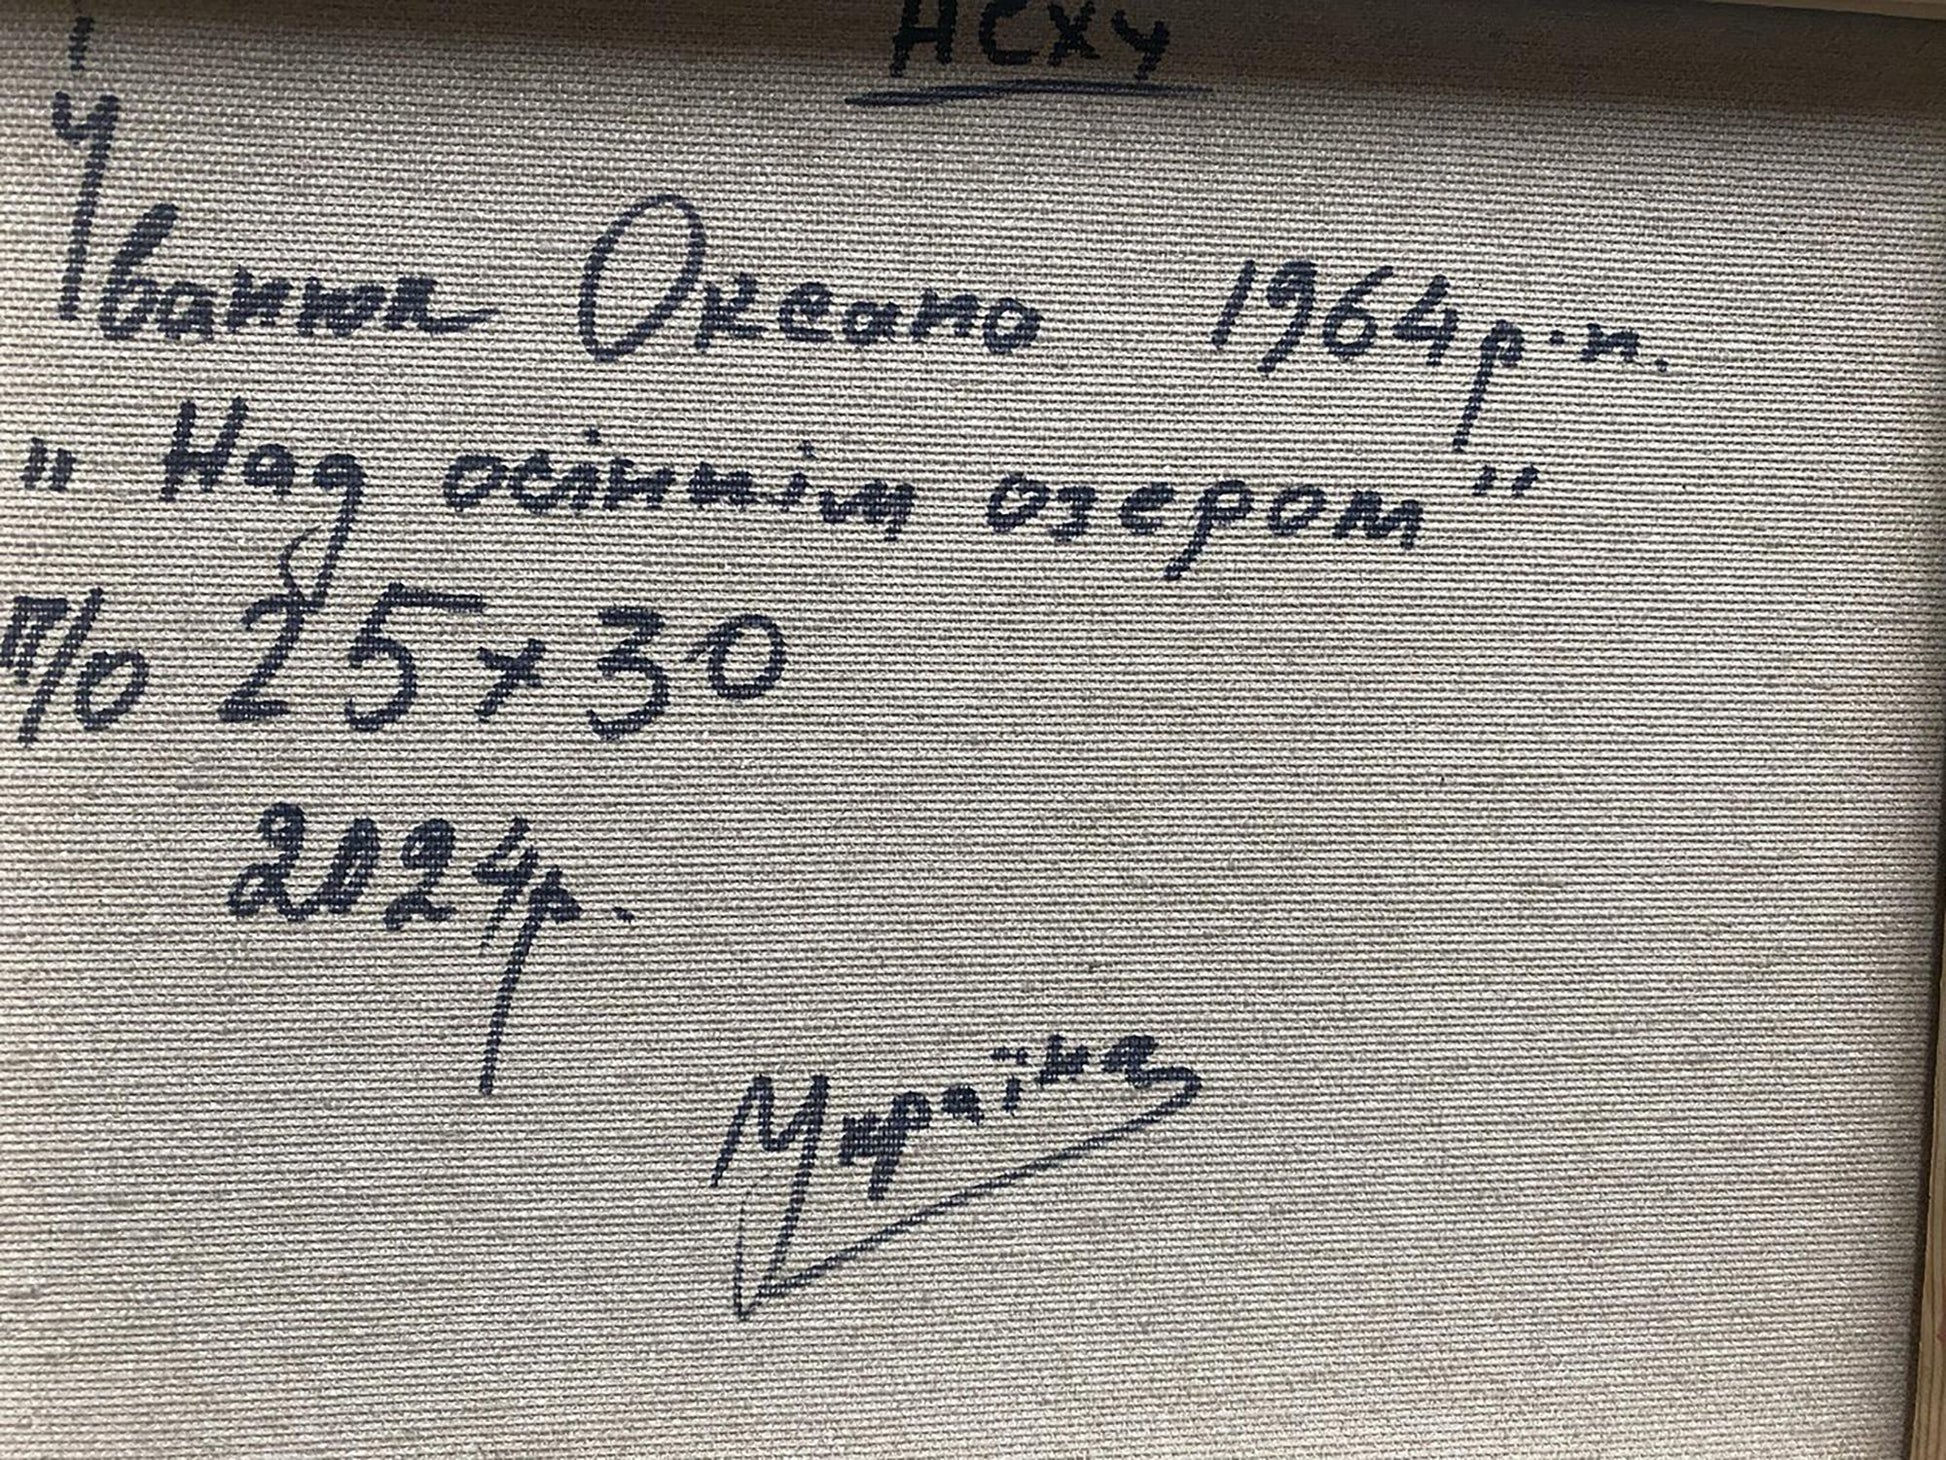 НСХУ
Іванюк Оксана 1964 р.н.
„Над осіннім озером"
п/о 25×30
2024р.
Україна